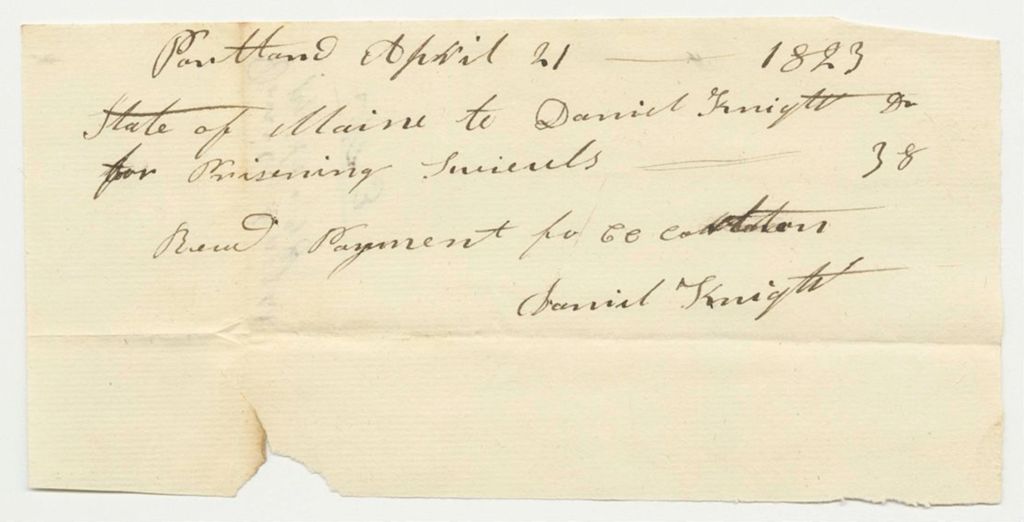 Portland April 21 — 1823
State of Maine to Daniel Knight Dr
for Prisening Swiculs — 38
Recud Payment
Daniel Knight